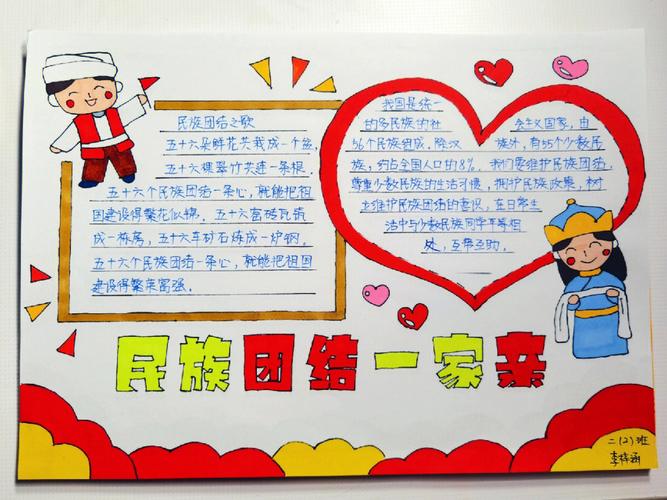 民族团结之歌
五十六朵鲜花共栽成一个盆,
五十六棵翠竹共连一条根.
五十六个民族团结一条心,就能把祖
国建设得繁花似锦.五十六窑砖瓦筑
成一栋房,五十六车矿石炼成一炉钢.
五十六个民族团结一条心,就能把祖国
建设得繁荣富强.
我国是统一
的多民族的社 会主义国家,由
56个民族组成.除汉 族外,有55个少数民
族,约占全国人口的8%.我们要维护民族团结,
尊重少数民族的生活习惯,拥护民族政策,树
立维护民族团结的意识,在日常生
活中与少数民族同学平等相
处,互帮互助.
民族团结一家亲
二(2)班
李梓涵